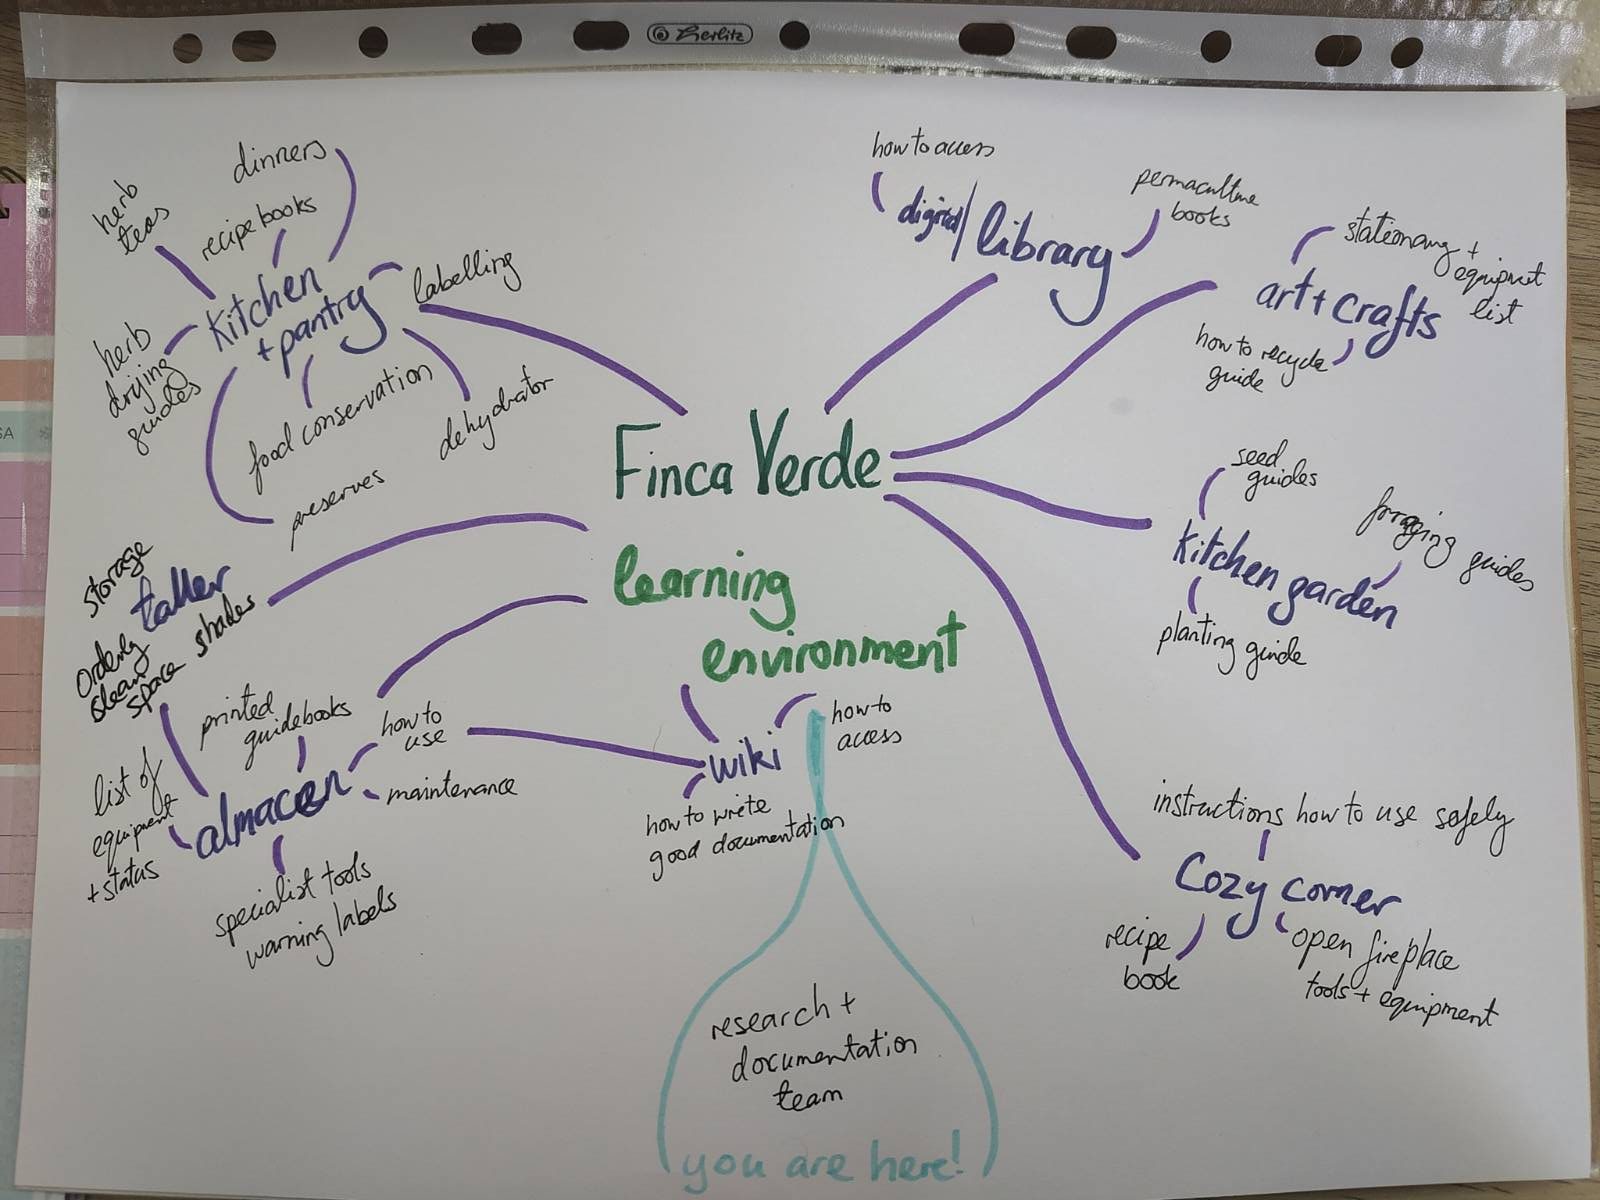 Herlitz
dinners
herb
teas
recipe books
kitchen
+ pantry
labelling
herb
drying
guides
food conservation
dehydrator
preserves
how to access
digital/library
permaculture
books
art + crafts
stationary +
equipment
list
how to recycle
guide
Finca Verde
learning
environment
seed
guides
kitchen garden
foraging guides
planting guide
storage
taller
orderly
clean
space shades
printed
guidebooks
how to
use
almacén
maintenance
list of
equipment
+ status
specialist tools
warning labels
wiki
how to
access
how to write
good documentation
instructions how to use safely
Cozy corner
recipe
book
open fireplace
tools + equipment
research +
documentation
team
you are here!
SA